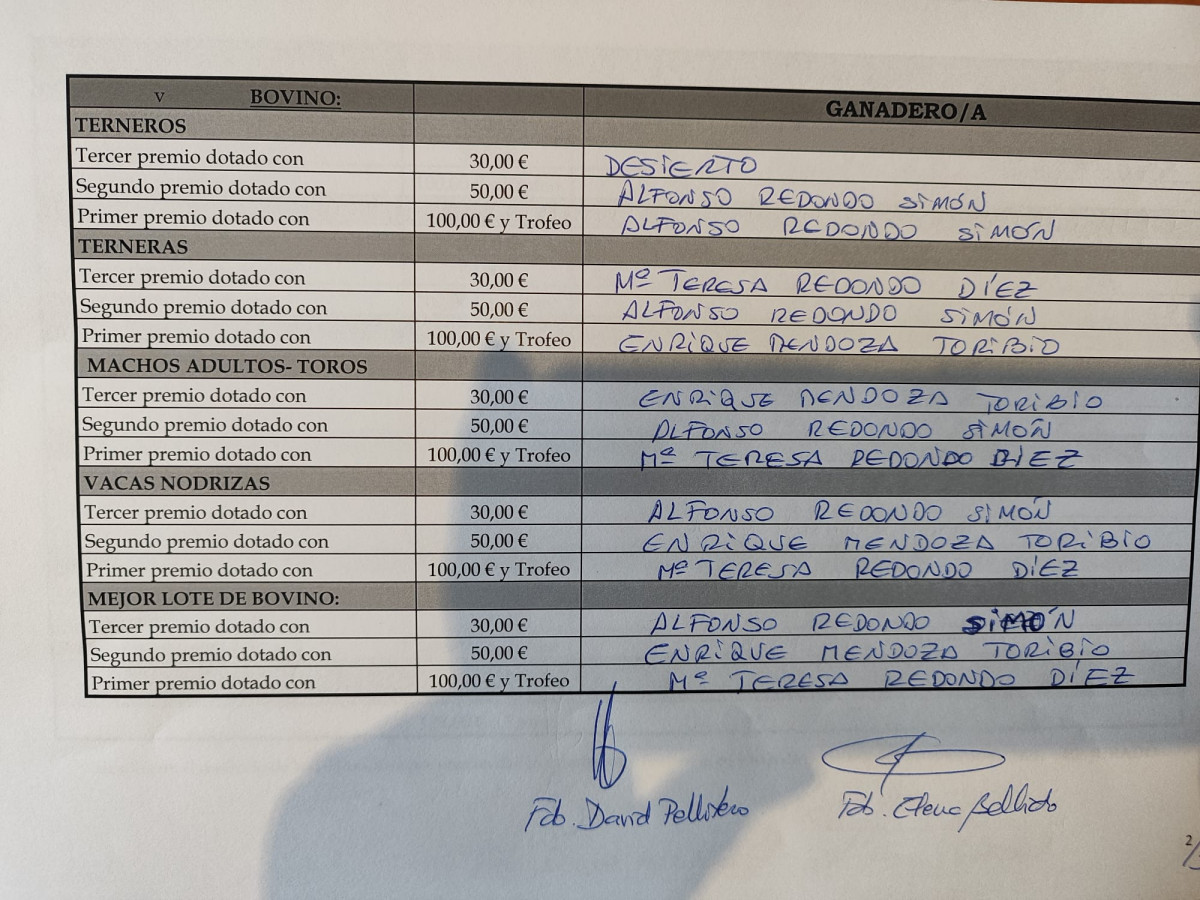 v BOVINO: GANADERO/A
TERNEROS
Tercer premio dotado con 30,00 € DESIERTO
Segundo premio dotado con 50,00 € ALFONSO REDONDO SIMÓN
Primer premio dotado con 100,00 € y Trofeo ALFONSO REDONDO SIMÓN
TERNERAS
Tercer premio dotado con 30,00 € Mª TERESA REDONDO DÍEZ
Segundo premio dotado con 50,00 € ALFONSO REDONDO SIMÓN
Primer premio dotado con 100,00 € y Trofeo ENRIQUE MENDOZA TORIBIO
MACHOS ADULTOS- TOROS
Tercer premio dotado con 30,00 € ENRIQUE MENDOZA TORIBIO
Segundo premio dotado con 50,00 € ALFONSO REDONDO SIMÓN
Primer premio dotado con 100,00 € y Trofeo Mª TERESA REDONDO DÍEZ
VACAS NODRIZAS
Tercer premio dotado con 30,00 € ALFONSO REDONDO SIMÓN
Segundo premio dotado con 50,00 € ENRIQUE MENDOZA TORIBIO
Primer premio dotado con 100,00 € y Trofeo Mª TERESA REDONDO DÍEZ
MEJOR LOTE DE BOVINO:
Tercer premio dotado con 30,00 € ALFONSO REDONDO SIMÓN
Segundo premio dotado con 50,00 € ENRIQUE MENDOZA TORIBIO
Primer premio dotado con 100,00 € y Trofeo Mª TERESA REDONDO DÍEZ
Fdo. David Pellitero Fdo. Elena Bellido
2